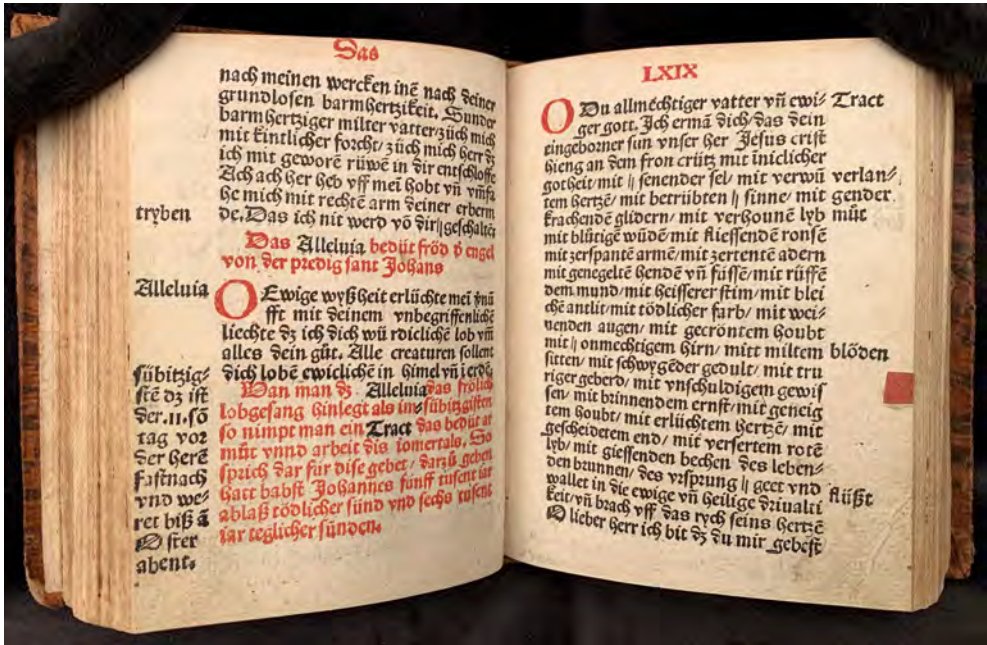 Das
nach meinen wercken inē nach deiner
grundlosen barmhertzikeit. Sunder
barmhertziger milter vatter/züch mich
mit kintlicher forcht/ züch mich herr dz
ich mit geworē rüwē in dir entschloffe
Ach ach her heb vff meī hobt vñ vmfa
he mich mit rechtē arm deiner erberm
tryben
de. Das ich nit werd vō dir||geschaltē
Das Alleluia bedüt fröd d engel
von der predig sant Johans
Alleluia
O Ewige wyßheit erlüchte meī
fft mit deinem vnbegriffenlichē
liechte dz ich dich wü rdiclichē lob vm̄
alles dein güt. Alle creaturen sollent
dich lobē ewiclichē in himel vñ ī erdē
sübitzig-
stē dz ist
der .11. sō
tag vor
der herē
fastnach
vnd we-
ret biß ā
Oster
abent.
Wan man dz Alleluia das frölich
lobgesang hinlegt als im sübitzgisten
so nimpt man ein Tract das bedüt at
müt vnnd arbeit dis iomertals. So
sprich dar für dise gebet/ darzū geben
hatt babst Johannes fünff tusent iar
ablaß tödlicher sünd vnd sechs tusent
iar teglicher sünden.
LXIX
O Du allmechtiger vatter vñ ewi- Tract
ger gott. Ich ermā dich/das dein
eingeborner sun vnser her Jesus crist
hieng an dem fron crütz mit īniclicher
gotheit/mit || senender sel/ mit verwū verlan-
tem hertzē/ mit betrübten || sinne/ mit gender
krachendē glidern/ mit verhounē lyb müt
mit blütigē wūdē/mit fliessendē ronsē
mit zerspantē armē/mit zertentē adern
mit genegeltē hendē vñ füssē/mit rüffē
dem mund/mit heisserer stim/mit blei
chē antlit/mit tödlicher farb/ mit wei-
nenden augen/ mit gecröntem houbt
mit || onmechtigem hirn/ mitt miltem blöden
sitten/ mit schwygēder gedult/ mit tru
riger geberd/ mit vnschuldigem gewis
sen/ mit brinnendem ernst/mit geneig
tem houbt/ mit erlüchtem hertzē/ mit
gescheidetem end/ mit versertem rotē
lyb/ mit giessenden bechen des leben-
den brunnen/ des vrsprung || geet vnd flüßt
wallet in die ewige vñ heilige driualti
keit/vñ brach vff das rych seins hertzē
O lieber herr ich bit dz du mir gebest